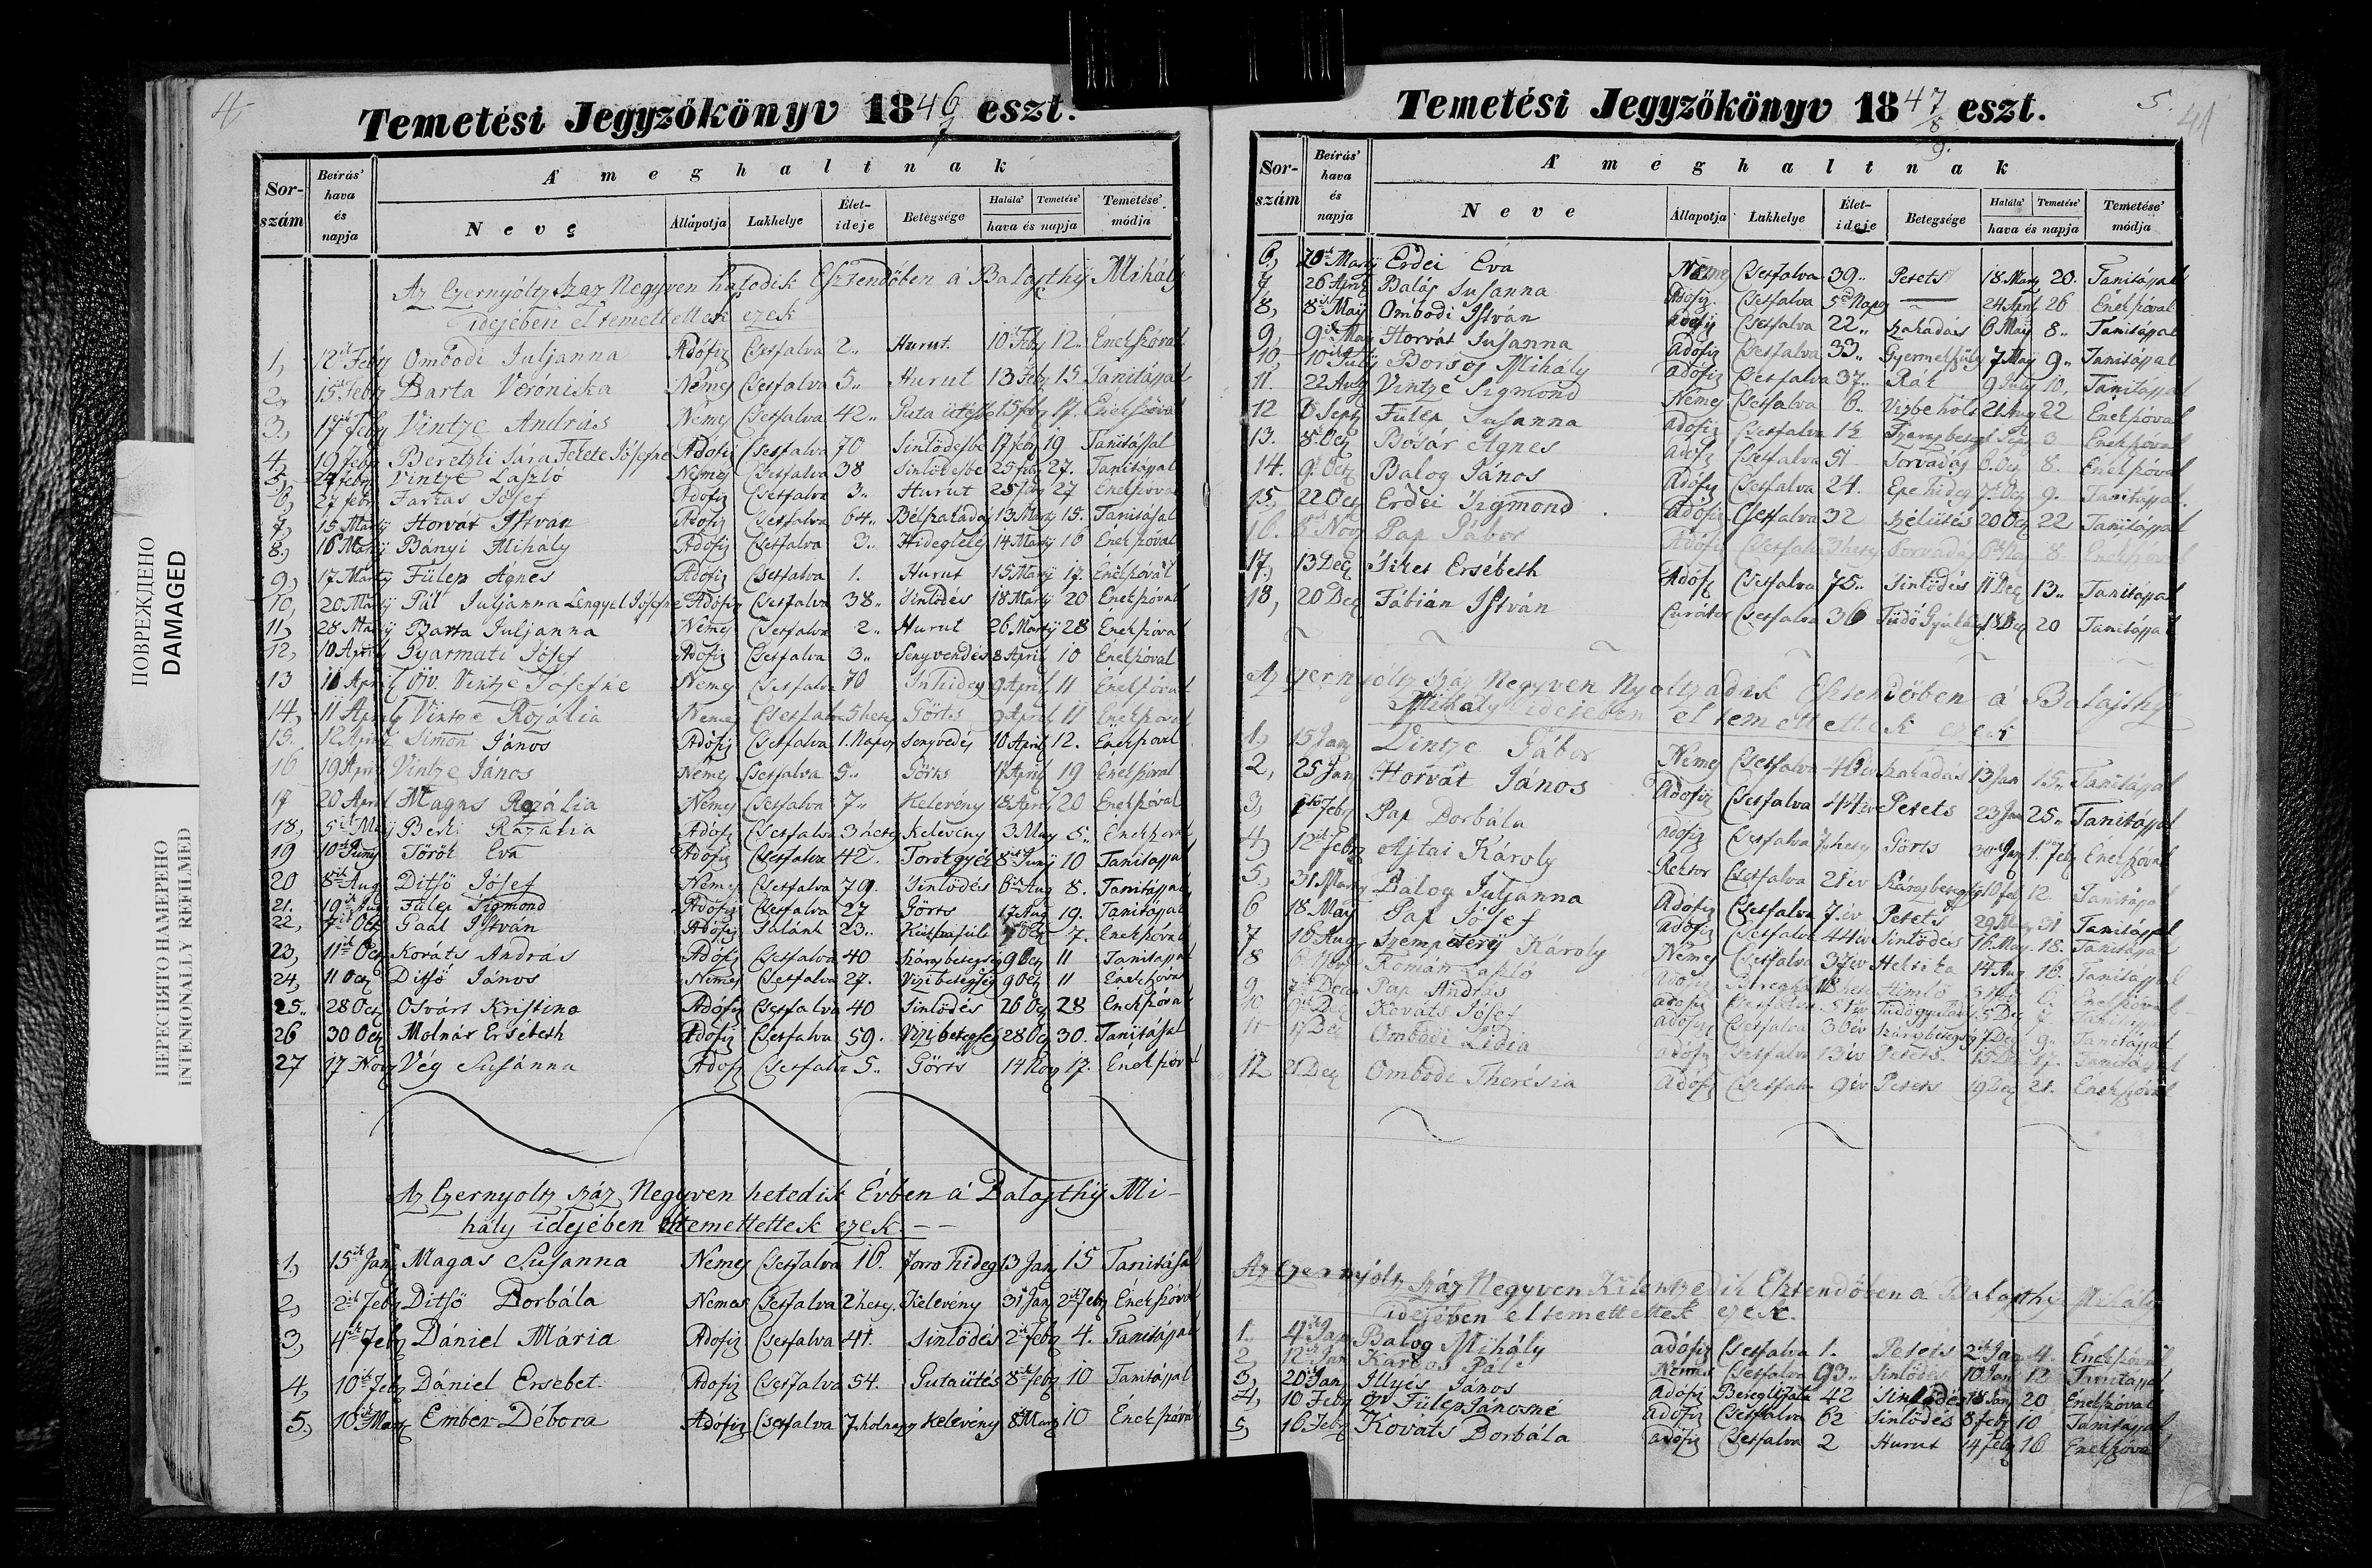 4,
Temetési Jegyzőkönyv 1846/7 eszt.
Sor-szám Beírás' hava és napja A' meghaltnak
Neve Állapotja Lakhelye Élet-ideje Betegsége Halála' Temetése' hava és napja Temetése' módja
Az Ezernyóltz Száz Negyven hatodik Esztendőben á Balajthÿ Mihály
idejében eltemettettek ezek
1, 12ik Febr Ombodi Juljanna Adófiz Csetfalva 2,, Hurut. 10 Feb 12,, Énekszóval
2, 15ik Febr Barta Verónika Nemes Csetfalva 5,, Hurut 13 Feb 15 Tanitással
3, 17ik Feb Vintze András Nemes Csetfalva 42,, Guta ütés 15 feb 17. Énekszóval
4 19 Feb Beretzki Sára Fekete Jósefne Adófiz Csetfalva 70 Sinlödésbe 17 feb 19 Tanitással
5, 27 febr Vintze László Nemes Csetfalva 38 Sinlödésbe 25 feb 27. Tanitással
6, 27 febr Farkas Jósef Adófiz Csetfalva 3,, Hurut 25 feb 27 Énekszóval
7, 15 Martz Horvát Istvan Adófiz Csetfalva 64,, Bélszakadás 13 Martz 15. Tanitásal
8, 16 Martz Bányi Mihály Adófiz Csetfalva 3,, Hideglelés 14 Martz 16 Énekszóval
9, 17 Martz Fülep Ágnes Adófiz Csetfalva 1. Hurut 15 Martz 17. Énekszóval
10, 20 Martz Pál Juljanna Lengyel Jósefne Adófiz Csetfalva 38,, Sinlödés 18 Martz 20 Énekszóval
11, 28 Martz Barta Juljanna Nemes Csetfalva 2,, Hurut 26 Martz 28 Énekszóval
12, 10 April Gyarmati Jósef Adófiz Csetfalva 3,, Senyvendés 8 April 10 Énekszóval
13 11 April özv. Vintze Jósefne Nemes Csetfalva 70 Inhideg 9 April 11 Énekszóval
14, 11 April Vintze Rozália Nemes Csetfalva 5 hetes Görts 9 April 11 Énekszóval
15. 12 April Simon János Adófiz Csetfalva 1. Napos Senyvedés 10 April 12. Énekszóval
16 19 April Vintze János Nemes Csetfalva 5,, Görts 17 April 19 Énekszóval
17 20 April Magas Rozália Nemes Csetfalva 7,, Kelevény 18 April 20 Énekszóval
18, 5ik Maj Berki Rozália Adófiz Csetfalva 3 hetes Kelevény 3 May 5,, Énekszóval
19 10ik Junÿ Török Éva Adófiz Csetfalva 42. Torokgyék 8ik Junÿ 10 Tanitással
20 8ik Aug Ditső Jósef Nemes Csetfalva 79. Sinlödés 6ik Aug 8. Tanitással
21. 19ik Aug Fülep Sigmond Adófiz Csetfalva 27 Görts 17 Aug 19. Tanitással
22, 7ik Oct Gaál István Adófiz Salánk 23,, 7. Énekszóval
23, 11ik Oct Kováts András Adófiz Csetfalva 40 Száraz betegség 9 Oct 11 Tanitással
24, 11 Oct Ditső János Nemes Csetfalva 27. Vizibetegség 9 Oct 11 Énekszóval
25,, 28 Oct Osvárt Kristina Adófiz Csetfalva 40 Sinlödés 26 Oct 28 Énekszóval
26 30 Oct Molnár Ersebeth Adófiz Csetfalva 59. Vizibetegség 28 Oct 30. Tanitásal
27 17 Nov Vég Susánna Adófiz Csetfalva 5,, Görts 14 Nov 17. Énekszóval
Az Ezernyoltz száz Negyven hetedik Évben á Balajthÿ Mi-
hály idejében eltemettettek ezek – –
1, 15ik Jan Magas Susanna Nemes Csetfalva 16. Forro hideg 13 Jan 15 Tanitásal
2, 2ik Feb Ditső Borbála Nemes Csetfalva 2 hetes. Kelevény 31 Jan 2ik Feb Énekszóval
3, 4ik Feb Dániel Mária Adófiz Csetfalva 41. Sinlödés 2ik Feb 4. Tanitással
4, 10ik Feb Dániel Ersebet. Adófiz Csetfalva 54. Gutaütés 8ik feb 10 Tanitással
5, 10ik Martz Ember Débora Adófiz Csetfalva 7 holnapos Kelevény 8ik Martz 10 Énekszóval
5. 41
Temetési Jegyzőkönyv 1847/8/9. eszt.
Sor-szám Beírás' hava és napja A' meghaltnak
Neve Állapotja Lakhelye Élet-ideje Betegsége Halála' Temetése' hava és napja Temetése' módja
6, 20ik Martz Erdei Éva Neme Csetfalva 39,, Petets 18 Martz 20. Tanitással
7, 26 April Balás Susanna Adófiz. Csetfalva 5 Napos — 24 April 26 Énekszóval
8, 8ik Maÿ Ombodi István Adófiz Csetfalva 22,, Szakadás 6 Maÿ 8,, Tanitással
9, 9ik May Horvát Susanna Adófiz Csetfalva 33,, Gyermekszülés 7 Maÿ 9,, Tanitással
10, 10ik Julÿ Borsos Mihály Adófiz Csetfalva 37,, Rák 9 Julÿ 10, Tanitással
11. 22 Aug Vintze Sigmond Nemes Csetfalva 6,, Vizbe holt 21 Aug 22 Énekszóval
12 Sept Fülep Susanna Adófiz Csetfalva 1½ Száraz beteg Sept 3 Énekszóval
13. 8 Oct Bósár Ágnes Adófiz Csetfalva 51 Sorvadás 6. Oct 8. Énekszóval
14. 9 Oct Balog János Adófiz Csetfalva 24. Epe hideg 7 Oct 9. Tanitással.
15, 22 Oct Erdei Sigmond Adófiz Csetfalva 32 szélütés 20 Oct 22 Tanitással
16. 8 Nov Pap Gábor Adófiz Csetfalva 3 hetes Sorvadás 6 Nov 8. Énekszóval
17, 13 Dec Siket Ersébeth Adófiz Csetfalva 75,, Sinlödés 11 Dec 13,, Tanitással
18, 20 Dec Fábián István Curátor Csetfalva 36 Tüdő Gyúladás 18 Dec 20 Tanitással
Az Ezernyóltz száz Negyven Nyoltzadik Esztendőben á Balajthÿ
Mihály idejében eltemettettek ezek
1, 15 Jan Vintze Gábor Nemes Csetfalva 46 év szakadás 13 Jan 15,, Tanitással
2, 25 Jan Horvát János Adófiz Csetfalva 44 év Petets 23 Jan 25,, Tanitással
3, 1ső Febr Pap Borbála Adófiz Csetfalva 7 hetes Görts 30 Jan 1. Feb Énekszóval
4, 12ik Febr Ajtai Károly Rektor Csetfalva 28 év Száraz betegség 10 feb 12. Tanitással
5, 31 Martz Balog Juljánna Adófiz Csetfalva 7. év Petets 29 Martz 31 Tanitással
6 18 May Pap Jósef Adófiz Csetfalva 44 év Sinlödés 16. May. 18. Tanitással
7 16 Aug Szempéterÿ Károly Nemes Csetfalva 37 év Hektika 14 Aug 16. Tanitással
8 6 Nov Román László Adófiz 18 hetes Himlő Énekszóval
9. 7ik Dec Pap András Adófiz Csetfalva 51 év Tüdőgyuladás 5 Dec 7 Tanitással
10 9ik Dec Kováts Jósef Adófiz Csetfalva 30 év Száraz betegség 7 Dec 9,, Tanitással
11 17 Dec Ombodi Lidia Adófiz Csetfalva 13 év Petets. 15 Dec 17. Tanitással
12 21. Dec Ombodi Therésia Adófiz Csetfalva 9 év Petets 19 Dec 21. Énekszóval
Az Ezernyóltz száz Negyven Kilentzedik Esztendőben á Balajthy Mihály
idejében eltemettettek ezek.
1. 4ik Jan Balog Mihály adófiz Csetfalva 1. Petets 2ik Jan 4. Énekszóval
2, 12ik Jan Karbos Pál Nemes Csetfalva 93,, Sinlödés 10 Jan 12 Tanitással
3, 20 Jan Illyés János Adófiz Beregújfalu 42 Sinlödés 18 Jan 20 Énekszóval
4, 10 Feb özv Fülep Jánosné Adófiz Csetfalva 62 Sinlödés 8 feb 10 Tanitással
5, 16 Feb Kováts Borbála Adófiz Csetfalva 2 Hurut 14 feb 16 Énekszóval
ПОВРЕЖДЕНО
DAMAGED
ПЕРЕСНЯТО НАМЕРЕНО
INTENIONALLY REFILMED